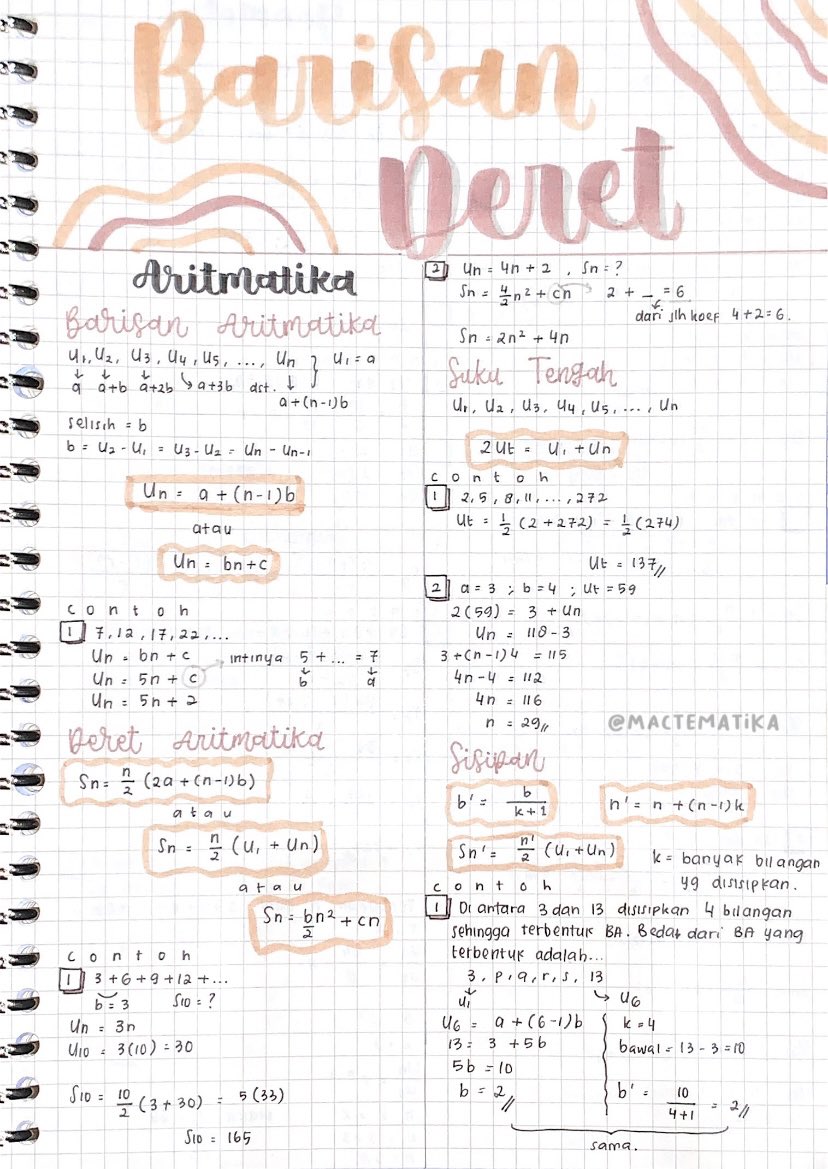 Barisan
Deret
Aritmatika
Barisan Aritmatika
U₁, U₂, U₃, U₄, U₅, ..., Un } U₁ = a
↓ ↓ ↓ ↘ a+3b dst. ↓
a a+b a+2b a+(n-1)b
selisih = b
b = U₂ - U₁ = U₃ - U₂ = Un - Un-1
Un = a + (n-1)b
atau
Un = bn + c
contoh
1 7, 12, 17, 22, ...
Un = bn + c → intinya 5 + ... = 7
Un = 5n + c ↓ b ↓ a
Un = 5n + 2
Deret Aritmatika
Sn = n/2 (2a + (n-1)b)
atau
Sn = n/2 (U₁ + Un)
atau
Sn = bn²/2 + cn
contoh
1 3 + 6 + 9 + 12 + ...
b = 3 S10 = ?
Un = 3n
U10 = 3(10) = 30
S10 = 10/2 (3 + 30) = 5(33)
S10 = 165
2 Un = 4n + 2 , Sn = ?
Sn = 4/2 n² + cn → 2 + _ = 6
dari jlh koef 4+2=6.
Sn = 2n² + 4n
Suku Tengah
U₁, U₂, U₃, U₄, U₅, ..., Un
2Ut = U₁ + Un
contoh
1 2, 5, 8, 11, ..., 272
Ut = 1/2 (2 + 272) = 1/2 (274)
Ut = 137//
2 a = 3 ; b = 4 ; Ut = 59
2(59) = 3 + Un
Un = 118 - 3
3 + (n-1)4 = 115
4n - 4 = 112
4n = 116
n = 29//
@MACTEMATiKA
Sisipan
b' = b/k+1
n' = n + (n-1)k
Sn' = n'/2 (U₁ + Un)
k = banyak bilangan
yg disisipkan.
contoh
1 Di antara 3 dan 13 disisipkan 4 bilangan
sehingga terbentuk BA. Beda dari BA yang
terbentuk adalah...
3, p, q, r, s, 13
↓ U₁ → U6
U6 = a + (6-1)b
13 = 3 + 5b
5b = 10
b = 2//
k = 4
bawal = 13 - 3 = 10
b' = 10/4+1 = 2//
sama.